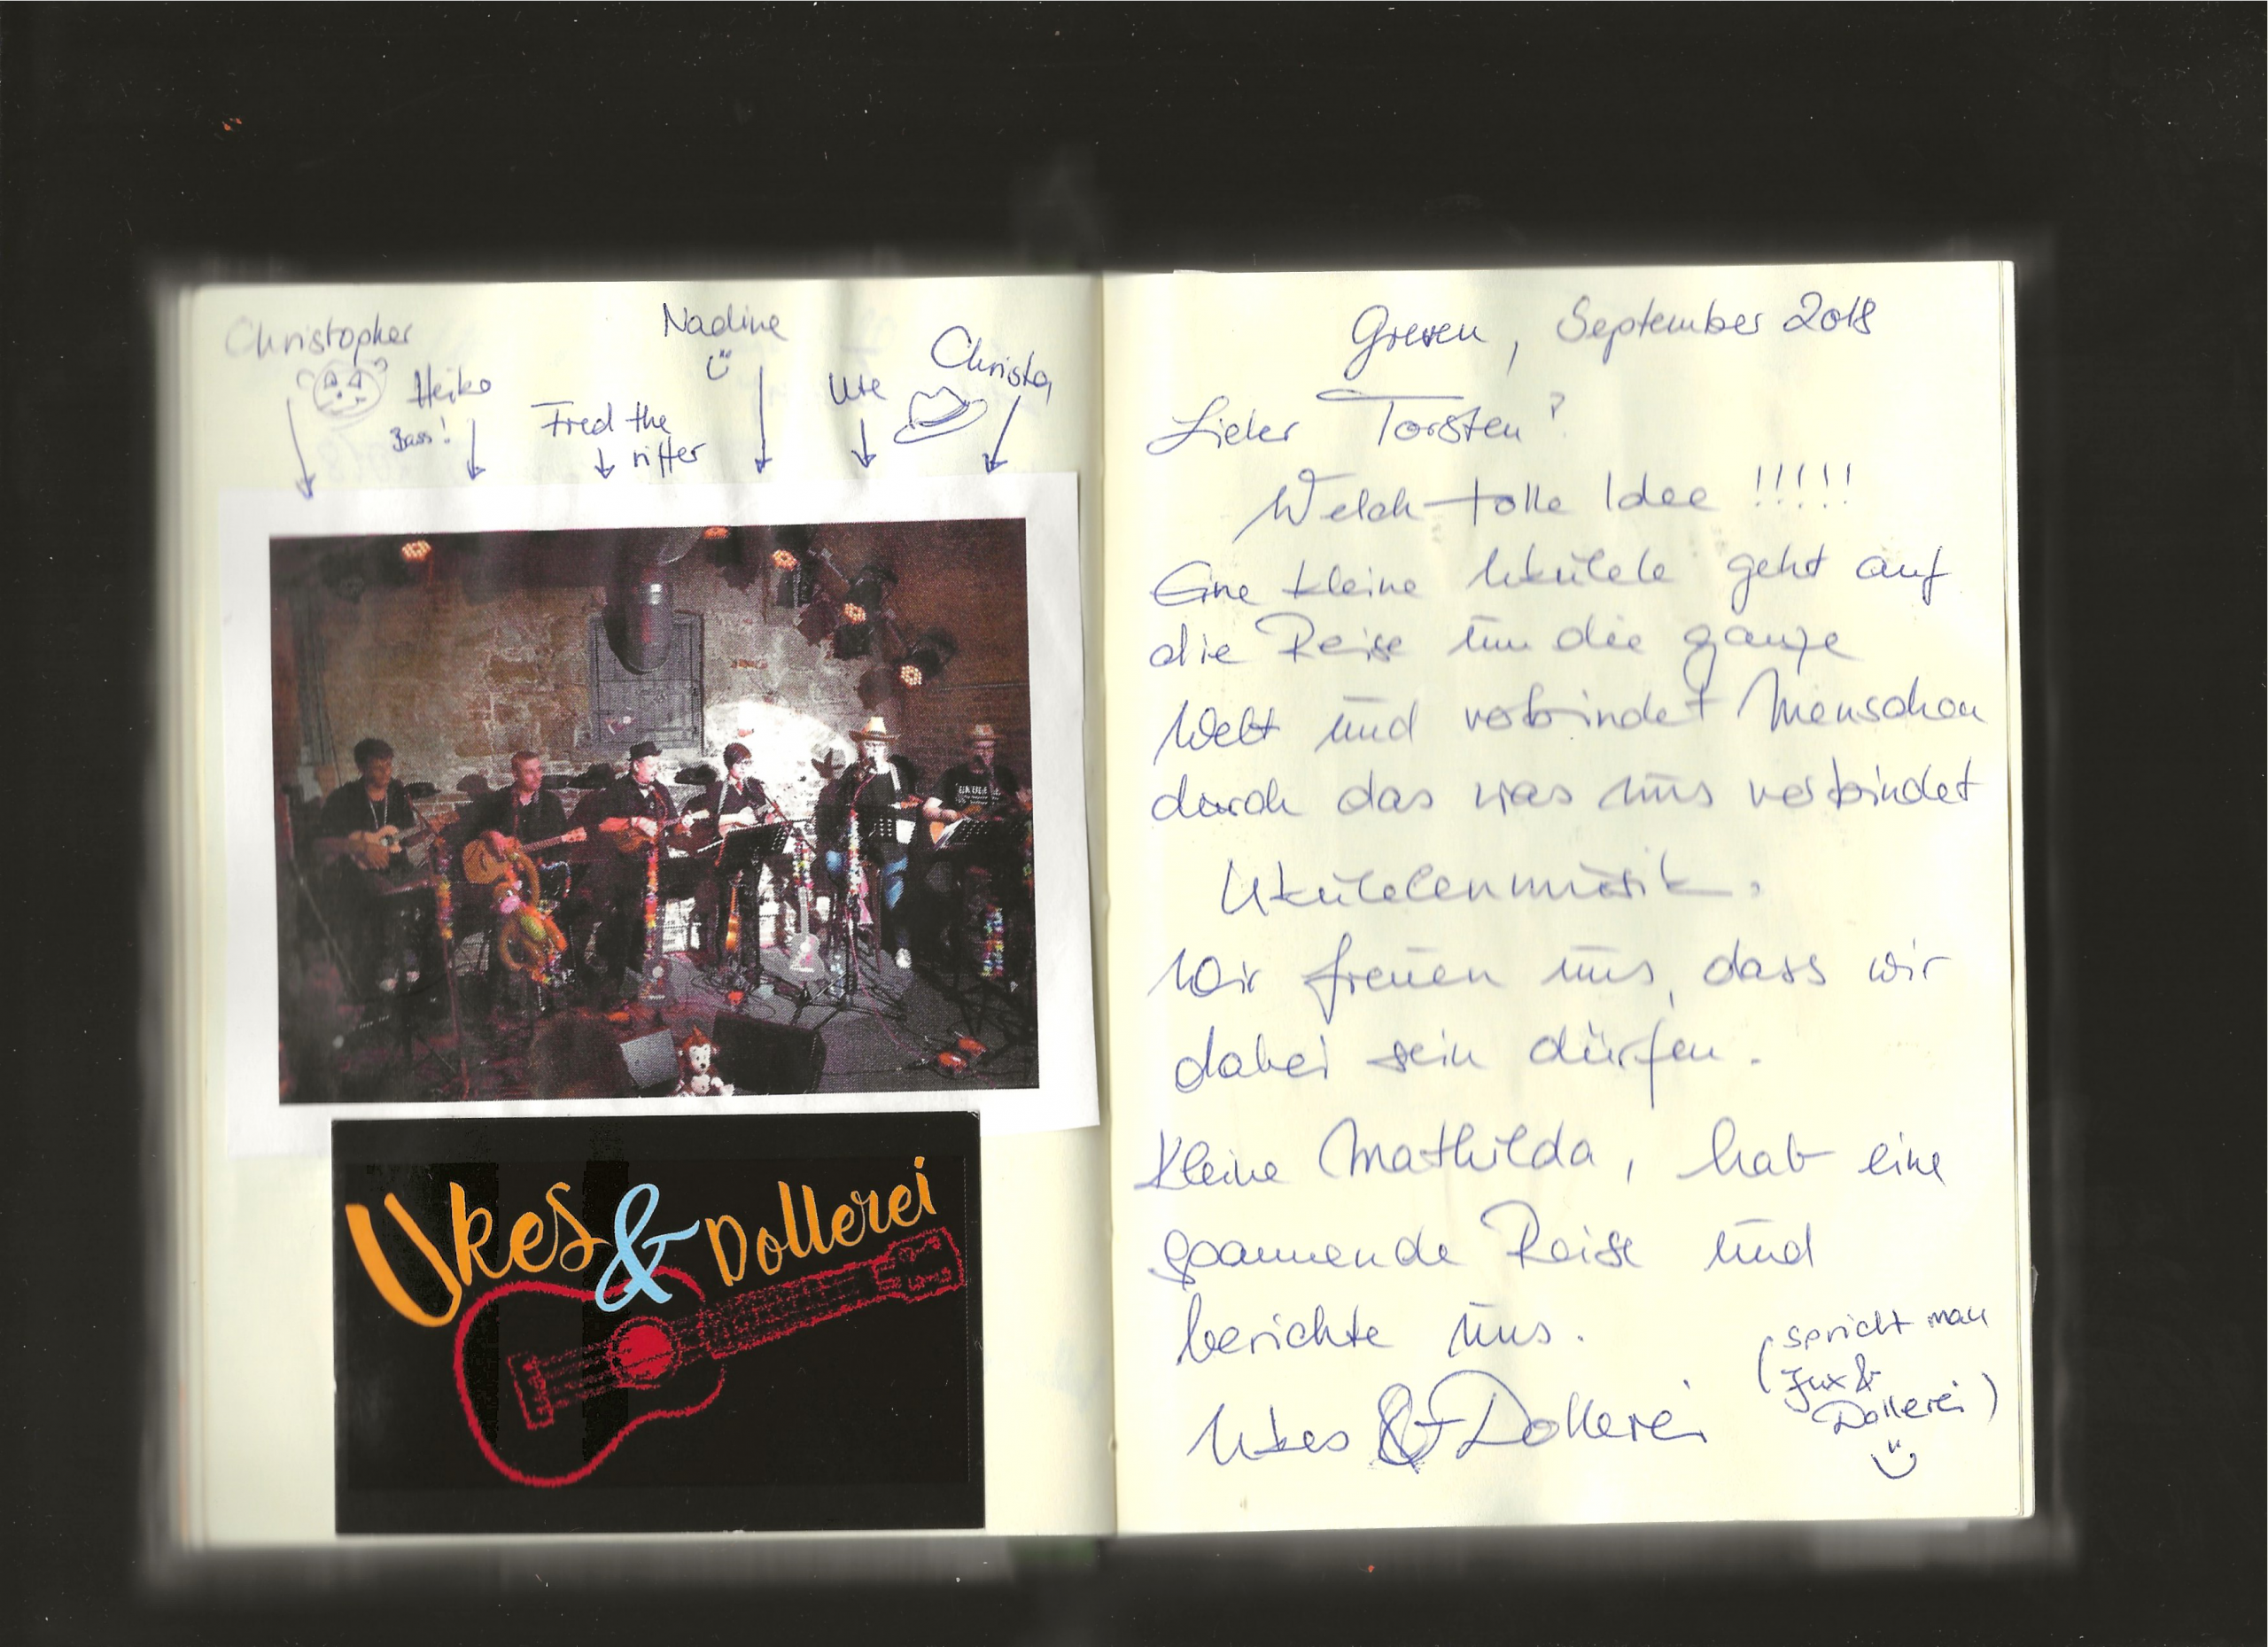 Christopher
Heiko
Bass!
Fred the
ritter
Nadine
Ute
Christa
Ukes & Dollerei
Greven, September 2018
Lieber Torsten?
Welch tolle Idee !!!!!
Eine kleine Ukulele geht auf
die Reise um die ganze
Welt und verbindet Menschen
durch das was uns verbindet
Ukulelenmusik.
Wir freuen uns, dass wir
dabei sein dürfen.
Kleine Mathilda, hab eine
spannende Reise und
berichte uns.
Ukes & Dollerei
(spricht man
Jux &
Dollerei)